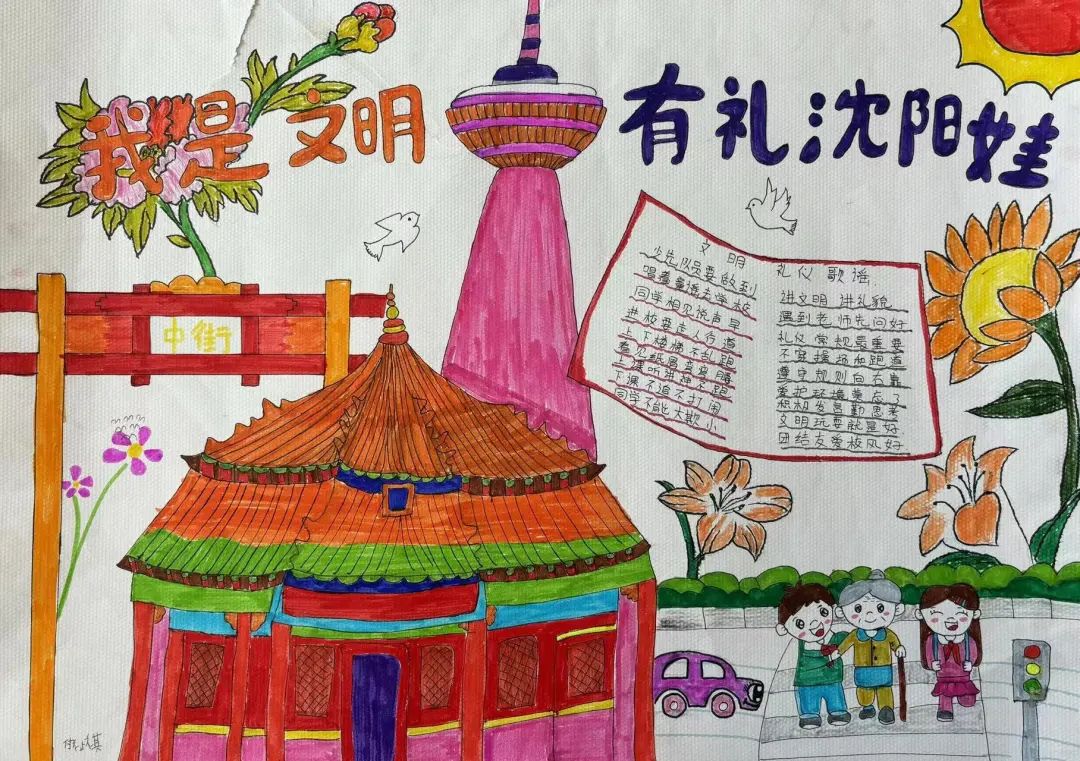 我是文明
有礼沈阳娃
中街
文明
少先队员要做到
唱着童谣去学校
同学相见说声早
进校要走人行道
上下楼梯不乱跑
看见纸屑弯弯腰
上课听讲神不跑
下课不追不打闹
同学不能大欺小
礼仪歌谣.
讲文明 讲礼貌
遇到老师先问好
礼仪常规最重要
不穿操场和跑道
遵守规则向右靠
爱护环境莫忘了
积极发言勤思考
文明玩耍就是好.
团结友爱校风好